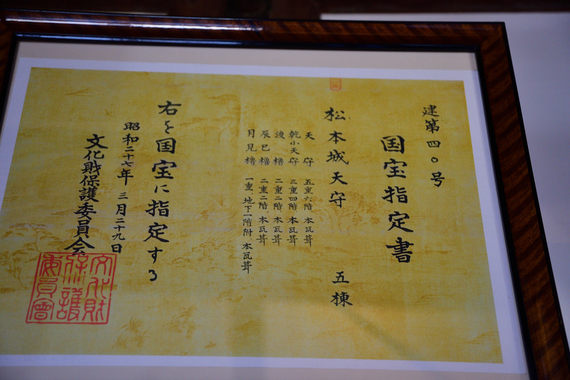 建第四〇号
国宝指定書
松本城天守 五棟
天守 五重六階 本瓦葺
乾小天守 三重四階 本瓦葺
渡櫓 二重二階 本瓦葺
辰巳櫓 二重二階 本瓦葺
月見櫓 一重、地下一階附 本瓦葺
右を国宝に指定する
昭和二十七年三月二十九日
文化財保護委員会
文化財保護委員會